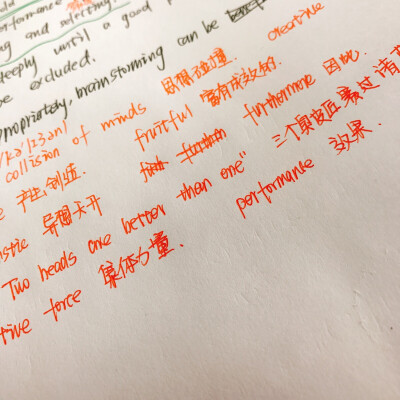 performance
ing and selecting.
deeply until a good
be excluded.
appropriately, brainstorming can be
/kə'lɪʒən/
collision of minds 思想碰撞. creative
产生,创造. fruitful 富有成效的.
furthermore 因此.
异想天开
"Two heads are better than one" 三个臭皮匠赛过诸
tive force 集体力量. performance 效果.